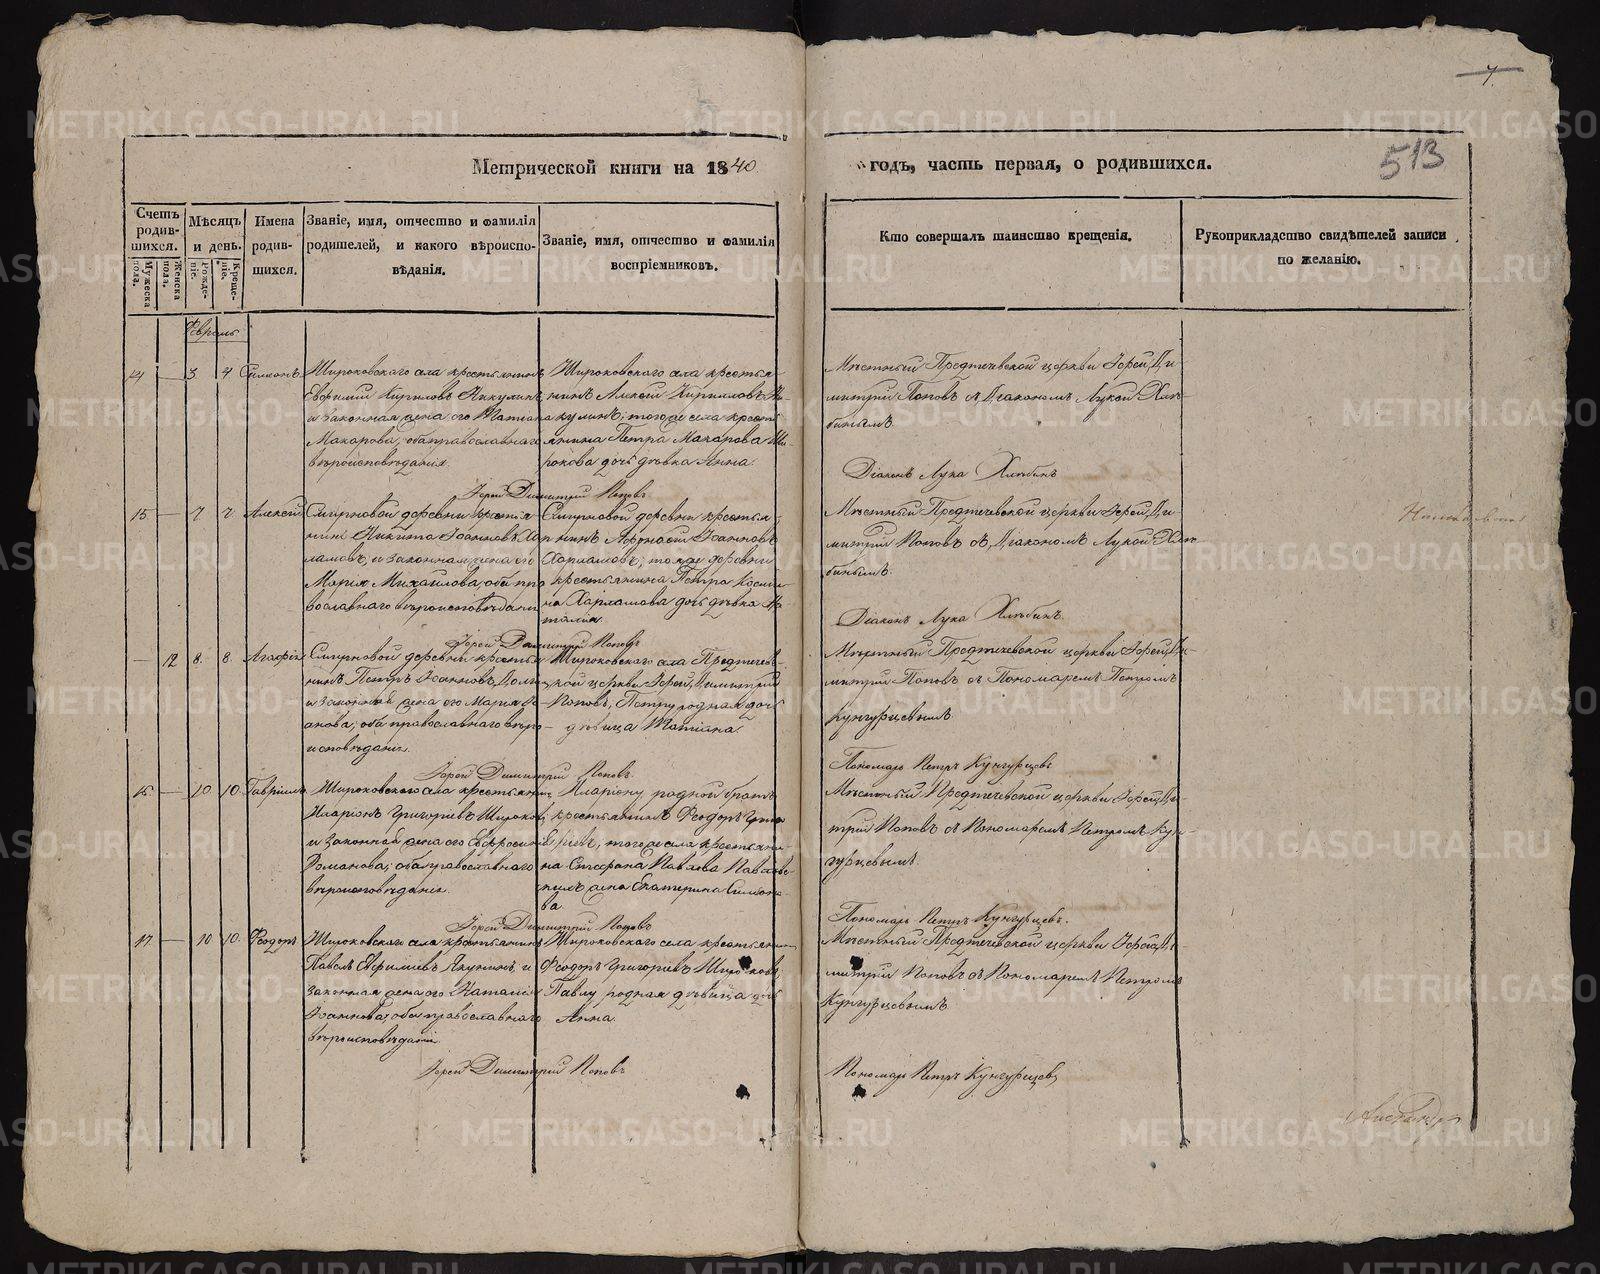 7.
513
Метрической книги на 1840.
годъ, часть первая, о родившихся.
Счетъ родившихся.
Мужеска пола.
Женска пола.
Мѣсяцъ и день.
Рожденіе.
Крещеніе.
Имена родившихся.
Званіе, имя, отчество и фамилія родителей, и какого вѣроисповѣданія.
Званіе, имя, отчество и фамилія воспріемниковъ.
Кто совершалъ таинство крещенія.
Рукоприкладство свидѣтелей записи по желанію.
Февраль
14 — 3. 4. Симеонъ
Широковскаго села крестьянинъ
Евфимій Кириловъ
и законная жена его Татіана
Макарова; оба православнаго
вѣроисповѣданія.
Широковскаго села крестья-
нинъ Алексій Кирилловъ Я-
кулинъ; того же села кресть-
янина Петра Макарова Ши-
рокова дочь дѣвка Анна.
Мѣстный Предтечевской церкви Іерей Ди-
митрій Поповъ съ Діакономъ Лукой Хлѣ-
бинымъ.
Діаконъ Лука Хлѣбинъ
Іерей Димитрій Поповъ
15 — 7 7 Алексій
Смирновой деревни крестья-
нинъ Никита Іоанновъ Хар-
ламовъ, и законная жена его
Марія Михаилова; оба пра-
вославнаго вѣроисповѣданія
Смирновой деревни крестья-
нинъ Іоанновъ
Харламовъ; тойже деревни
крестьянина Петра Косми-
на Харламова дочь дѣвка На-
талія.
Мѣстный Предтечевской церкви Іерей Ди-
митрій Поповъ съ Діакономъ Лукой Хлѣ-
бинымъ.
Діаконъ Лука Хлѣбинъ.
Іерей Димитрій Поповъ
— 12 8. 8. Агафія
Смирновой деревни крестья-
нинъ Петръ Іоанновъ
и законная жена его Марія
оба православнаго вѣро-
исповѣданія.
Широковскаго села Предтечев-
ской церкви Іерей Димитрій
Поповъ, Петру родная дочь
дѣвица Татіана.
Мѣстный Предтечевской церкви Іерей Ди-
митрій Поповъ съ Пономаремъ Петромъ
Кунгурцевымъ.
Пономарь Петръ Кунгурцевъ
Іерей Димитрій Поповъ.
16. — 10 10. Гавріилъ
Широковскаго села крестьянинъ
Иларіонъ Григорьевъ Широковъ,
и законная жена его Евфросинія
Романова; оба православнаго
вѣроисповѣданія.
Иларіону родной братъ
крестьянинъ Феодоръ Григо-
рьевъ, того же села крестьяни-
на Стефана Павлова
жена Екатерина Симеоно-
ва.
Мѣстный Предтечевской церкви Іерей Ди-
трій Поповъ съ Пономаремъ Петромъ Кун-
гурцевымъ.
Пономарь Петръ Кунгурцевъ.
Іерей Димитрій Поповъ
17. — 10 10. Феодоръ
Широковскаго села крестьянинъ
Павелъ Евфиміевъ Якунинъ, и
законная жена его Наталія
Іоаннова; оба православнаго
вѣроисповѣданія.
Широковскаго села крестьянинъ
Феодоръ Григорьевъ Широковъ,
Павлу родная дѣвица дочь
Анна.
Мѣстный Предтечевской церкви Іерей Ди-
митрій Поповъ съ Пономаремъ Петромъ
Кунгурцевымъ.
Іерей Димитрій Поповъ
Пономарь Петръ Кунгурцевъ
METRIKI.GASO-URAL.RU